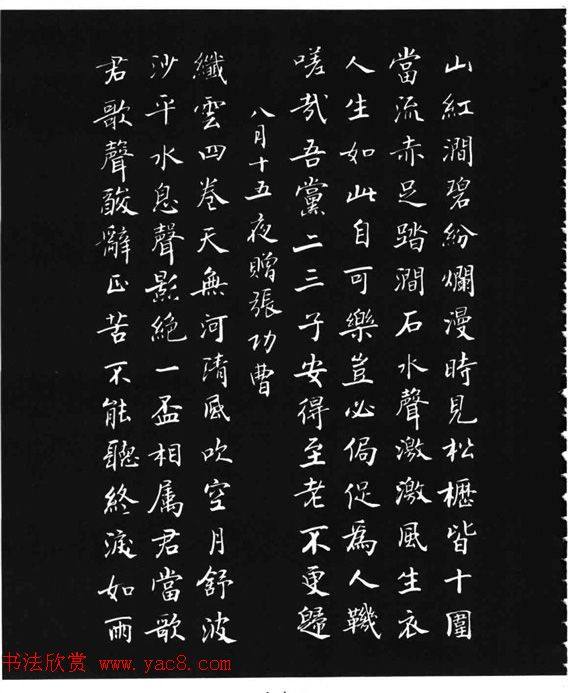 山紅澗碧紛爛漫時見松櫪皆十圍
當流赤足踏澗石水聲激激風生衣
人生如此自可樂豈必侷促爲人鞿
嗟哉吾黨二三子安得至老不更歸
八月十五夜贈張功曹
纖雲四卷天無河清風吹空月舒波
沙平水息聲影絶一盃相属君當歌
君歌聲酸辭正苦不能聽終淚如雨
书法欣赏 www.yac8.com